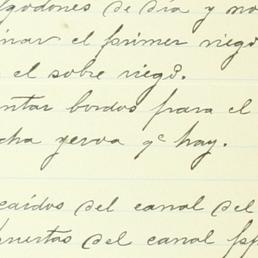 lgodones de dia y no
inar el primer riego
el sobre riego.
ntar bordos para el
cha yerva q.e hay.
caidos del canal del
puertas del canal